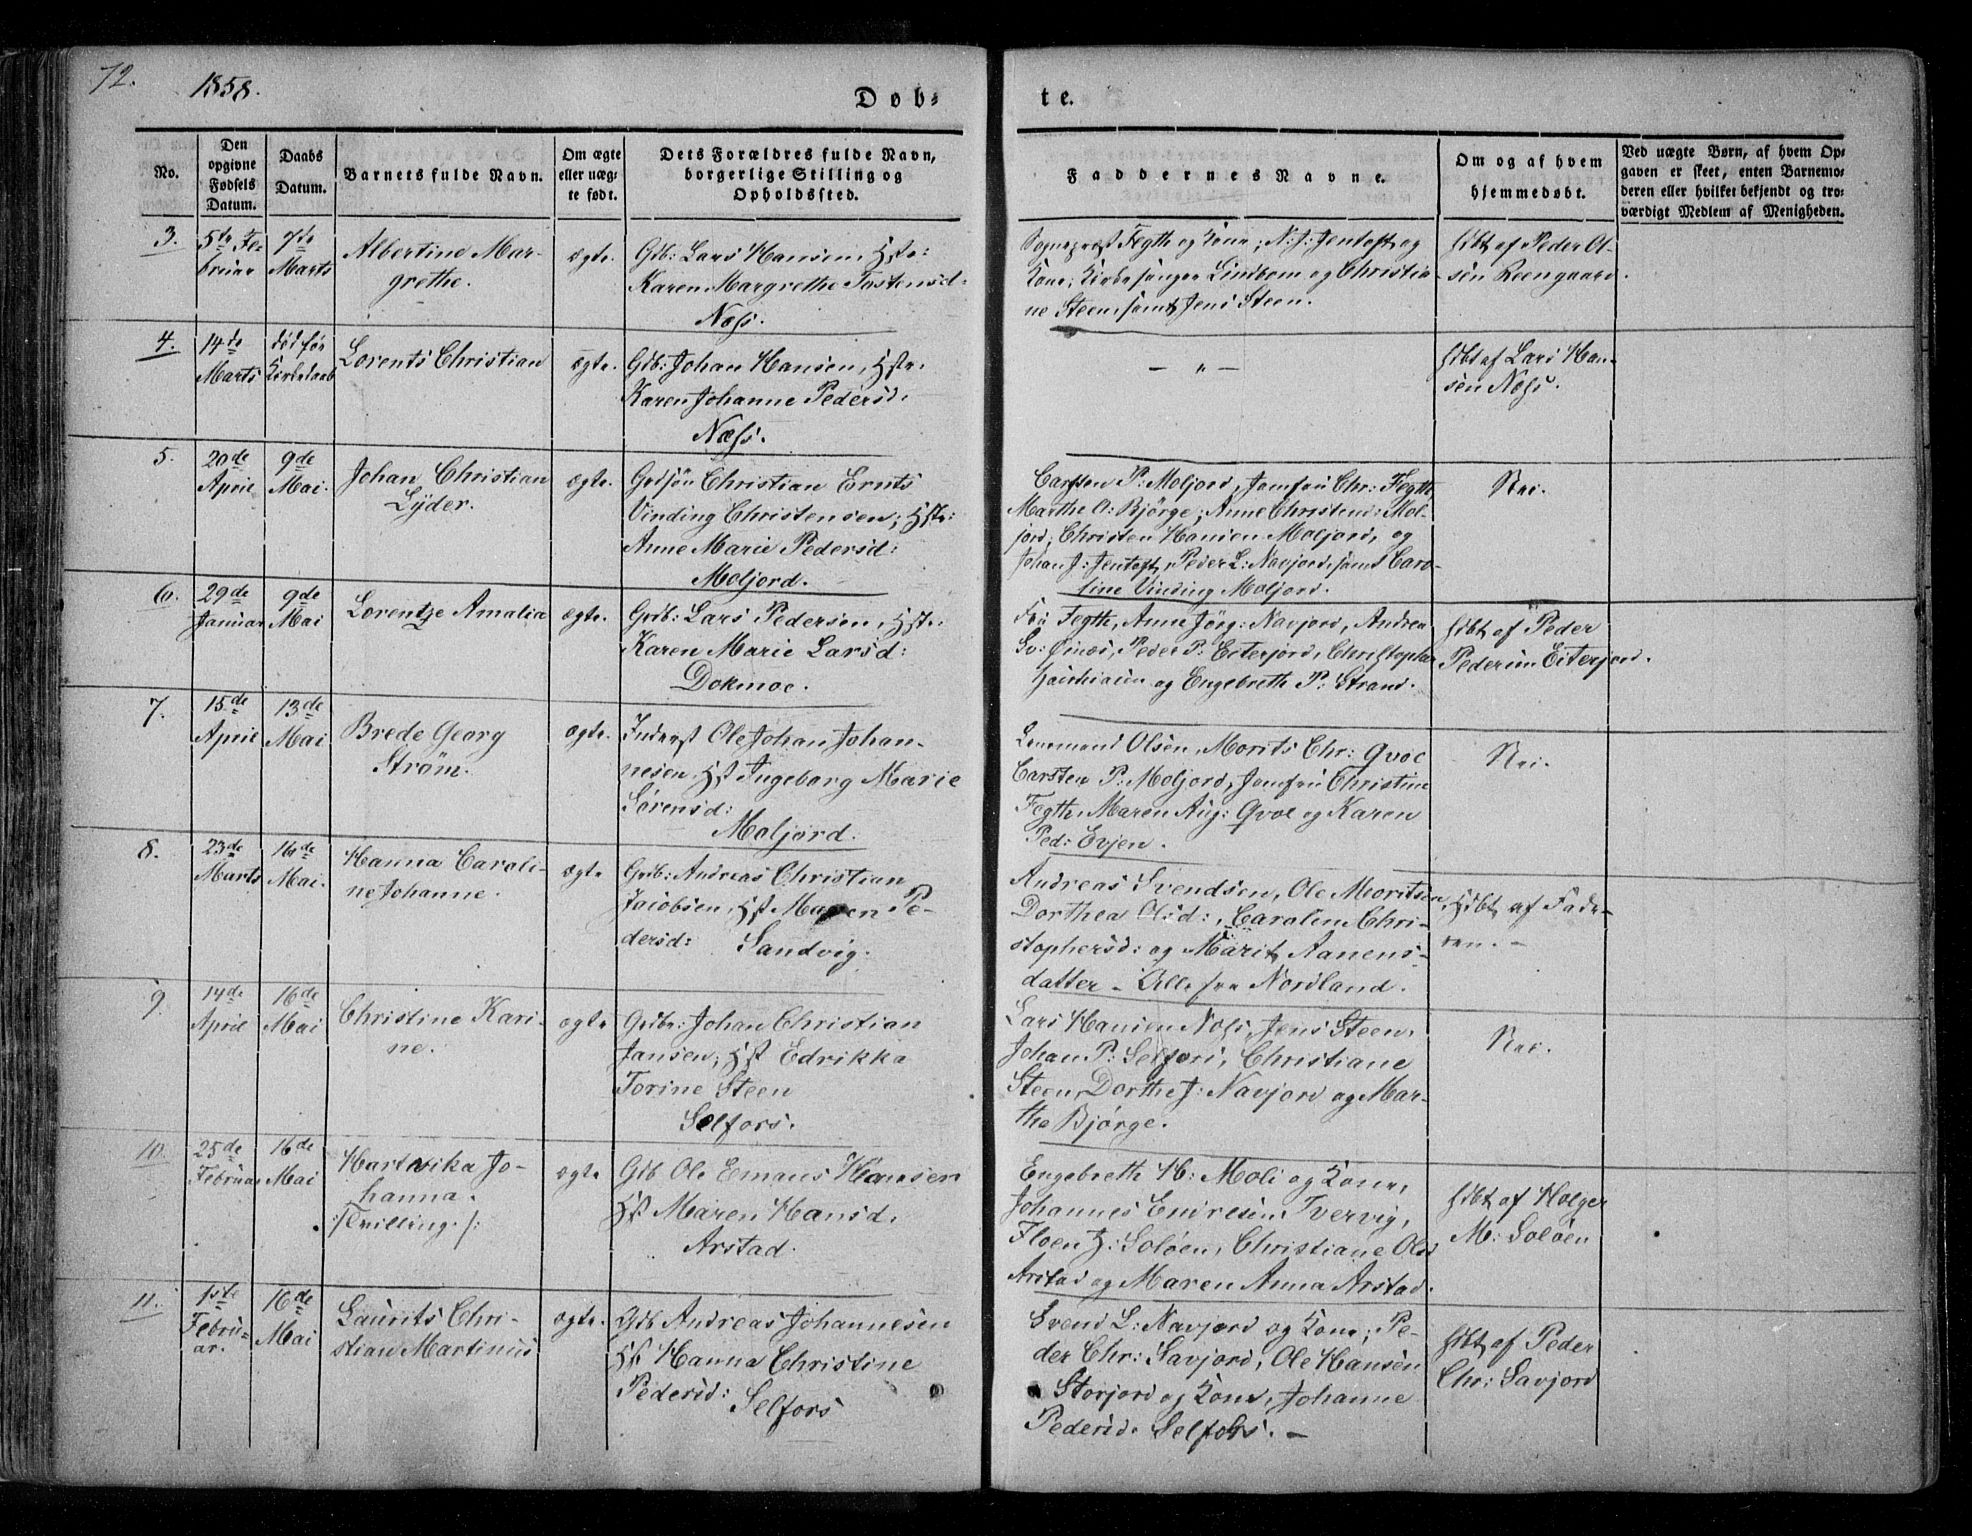 72.
1858.
Døb-
te.
No.
Den
opgivne
Fødsels
Datum.
Daabs
Datum.
Barnets fulde Navn.
Om ægte
eller uæg-
te født.
Dets Forældres fulde Navn,
borgerlige Stilling og
Opholdssted.
Faddernes Navne.
Om og af hvem
hjemmedøbt.
Ved uægte Børn, af hvem Op-
gaven er skeet, enten Barnemo-
deren eller hvilket bekjendt og tro-
værdigt Medlem af Menigheden.
3.
5te Fe-
bruar
7de
Marts
Albertine Mar-
grethe.
ægte.
Gdb: Lars Hansen, Hstr:
Karen Margrethe Tostensd:
Næss.
Sognepræst Fegth og Kone; N: J: Jentoft og
Kone; Kirkesanger Lindbom og Christia-
ne Steen, samt Jens Steen.
Hdbt af Peder Ol-
sen Reengaard.
4.
14de
Marts
død før
Kirkedaab
Lorents Christian
ægte.
Gdb: Johan Hansen, Hstr.
Karen Johanne Pedersd.
Næss.
— " —
Hdbt af Lars Han-
sen Næss.
5.
20de
April
9de
Mai.
Johan Christian
Lyder.
ægte.
Grdsøn Christian Ernts
Vinding Christensen; Hstr:
Anne Marie Pedersd:
Moljord.
Carsten P: Moljord, Jomfru Chr: Fegth,
Marthe O: Bjørge; Anne Christens: Mol-
jord; Christen Hansen Moljord, og
Johan J: Jentoft, Peder L: Navjord, samt Caro-
line Vinding Moljord.
Nei.
6.
29de
Januar
9de
Mai
Lorentze Amalia
ægte.
Grdb: Lars Pedersen, Hstr.
Karen Marie Larsd:
Dokmoe.
Fru Fegth, Anne Jørg: Navjord, Andrea
Sv: Øines, Peder P: Eiterjord, Christopher
og Engebreth P: Strand.
Hdbt af Peder
Pedersen Eiterjord.
7.
15de
April
13de
Mai
Brede Georg
Strøm.
ægte.
Inderst Ole Johan Johan-
nesen, Hst Ingeborg Marie
Sørensd:
Moljord.
Lensmand Olsen, Morits Chr: Qvoe
Carsten P: Moljord, Jomfru Christine
Fegth, Maren Aug: Qvoe og Karen
Ped: Evjen.
Nei.
8.
23de
Marts
16de
Mai.
Hanna Caroli-
ne Johanne.
ægte
Grdb: Andreas Christian
Jacobsen, Hst Maren Pe-
dersd: Sandvig.
Andreas Svendsen, Ole Moritsen,
Dorthea Olsd:, Carolin Chri-
stophersd: og Marit Aanens-
datter - Alle fra Nordland.
Hdbt af Fade-
ren. -
9.
14de
April
16de
Mai
Christine Kari-
ne.
ægte
Grdbr: Johan Christian
Jansen; Hst Edrikka
Torine Steen
Selfors.
Lars Hansen Næss, Jens Steen,
Johan P: Selfors, Christiane
Steen, Dorthe J: Navjord og Mar-
the Bjørge.
Nei.
10.
25de
Februar
16de
Mai
Hartvika Jo-
hanna.
:/Tvilling./:
ægte
Gdb Ole Emaus Hansen
Hst Maren Hansd.
Arstad.
Engebreth H: Moli og Kone,
Johannes Endresen Tvervig,
Floen H: Soløen, Christiane Olsd
Arstad og Maren Anna Arstad.
Hdbt af Holger
M: Soløen
11.
1ste
Febru-
ar.
16de
Mai
Laurits Chri-
stian Martinus
ægte.
Gdb Andreas Johannesen
Hst Hanna Christine
Pedersd:
Selfors
Svend L: Navjord og Kone; Pe-
der Chr: Savjord, Ole Hansen
Storjord og Kone, Johanne
Pedersd. Selfors. -
Hdbt af Peder
Chr: Savjord